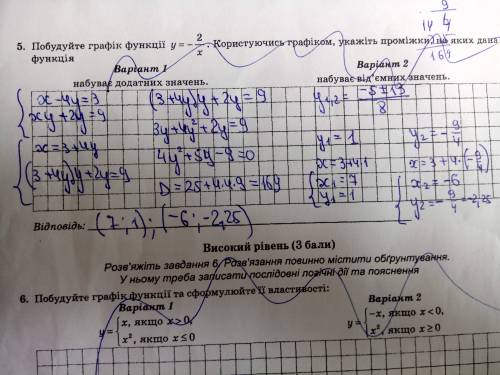 9
14 4
169
5. Побудуйте графік функції y = -2/x. Користуючись графіком, укажіть проміжки, на яких дана
функція
Варіант 1
набуває додатних значень.
Варіант 2
набуває від'ємних значень.
{ x-4y=3
xy+2y=9
{ x=3+4y
(3+4y)y+2y=9
(3+4y)y+2y=9
3y+4y²+2y=9
4y²+5y-9=0
D=25+4·4·9=169
y1,2 = (-5±13)/8
y1=1
x=3+4·1
{ x1=7
y1=1
y2=-9/4
x=3+4·(-9/4)
{ x2=-6
y2=-9/4=-2,25
Відповідь: (7;1);(-6;-2,25)
Високий рівень (3 бали)
Розв'яжіть завдання 6. Розв'язання повинно містити обґрунтування.
У ньому треба записати послідовні логічні дії та пояснення
6. Побудуйте графік функції та сформулюйте її властивості:
Варіант 1
y = { x, якщо x>0,
x², якщо x≤0
Варіант 2
y = { -x, якщо x<0,
x², якщо x≥0